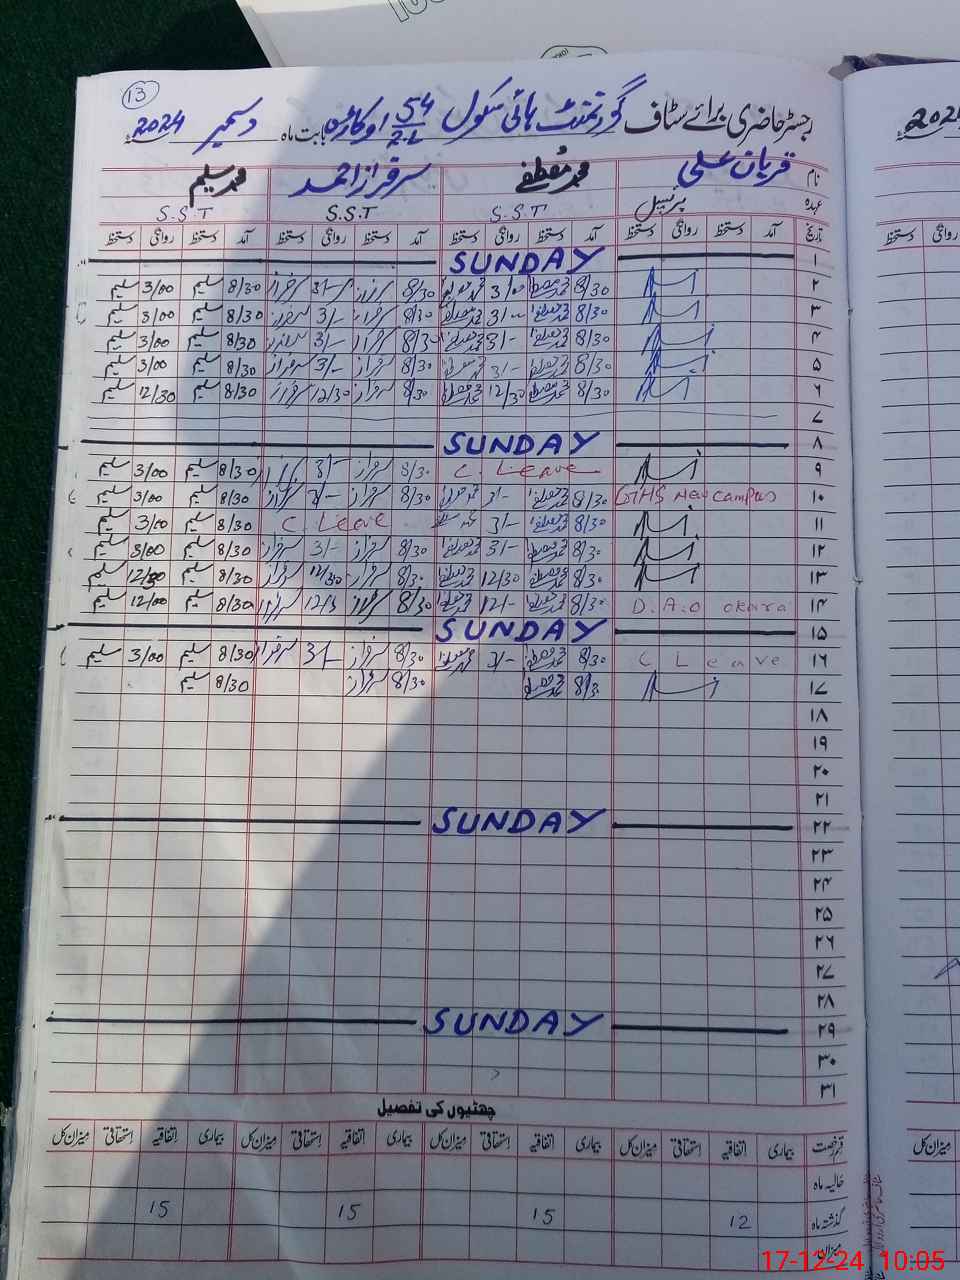 13
رجسٹر حاضری برائے سٹاف گورنمنٹ ہائی سکول 54/2L اوکاڑہ بابت ماہ دسمبر 2024ء
نام قربان علی محمد مصطفےٰ سرفراز احمد محمد سلیم
عہدہ پرنسپل S.S.T S.S.T S.S.T
تاریخ آمد دستخط روانگی دستخط آمد دستخط روانگی دستخط آمد دستخط روانگی دستخط آمد دستخط روانگی دستخط
۱ SUNDAY
۲ 8/30 3/00 8/30 سرفراز 3/- سرفراز 8/30 سلیم 3/00 سلیم
۳ 8/30 3/- 8/30 سرفراز 3/- سرفراز 8/30 سلیم 3/00 سلیم
۴ 8/30 3/- 8/30 سرفراز 3/- سرفراز 8/30 سلیم 3/00 سلیم
۵ 8/30 3/- 8/30 سرفراز 3/- سرفراز 8/30 سلیم 3/00 سلیم
۶ 8/30 12/30 8/30 سرفراز 12/30 سرفراز 8/30 سلیم 12/30 سلیم
۷
۸ SUNDAY
۹ C. Leave 8/30 سرفراز 3/- سرفراز 8/30 سلیم 3/00 سلیم
۱۰ GHS New campus 8/30 3/- 8/30 سرفراز 3/- سرفراز 8/30 سلیم 3/00 سلیم
۱۱ 8/30 3/- C Leave 8/30 سلیم 3/00 سلیم
۱۲ 8/30 3/- 8/30 سرفراز 3/- سرفراز 8/30 سلیم 3/00 سلیم
۱۳ 8/30 12/30 8/30 سرفراز 12/30 سرفراز 8/30 سلیم 12/30 سلیم
۱۴ D.A.O okara 8/30 12/- 8/30 سرفراز سرفراز 8/30 سلیم 12/00 سلیم
۱۵ SUNDAY
۱۶ C Leave 8/30 3/- 8/30 سرفراز 3/- سرفراز 8/30 سلیم 3/00 سلیم
۱۷ 8/30 8/30 سرفراز 8/30 سلیم
۱۸
۱۹
۲۰
۲۱
۲۲ SUNDAY
۲۳
۲۴
۲۵
۲۶
۲۷
۲۸
۲۹ SUNDAY
۳۰
۳۱
چھٹیوں کی تفصیل
قسم رخصت بیماری اتفاقیہ استحقاقی میزان کل بیماری اتفاقیہ استحقاقی میزان کل بیماری اتفاقیہ استحقاقی میزان کل بیماری اتفاقیہ استحقاقی میزان کل
حالیہ ماہ
گذشتہ ماہ 12 15 15 15
میزان
17-12-24 10:05